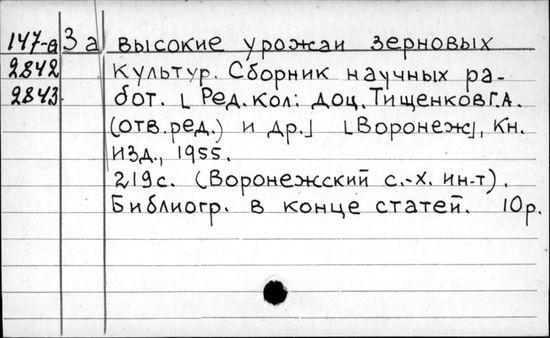 147-а За высокие урожаи зерновых
2842 культур. Сборник научных ра-
2843 бот. [Ред.кол: доц. Тищенков Г.А.
(отв.ред.) и др.] [Воронеж], Кн.
изд., 1955.
219с. (Воронежский с.-х. ин-т).
Библиогр. в конце статей. 10р.